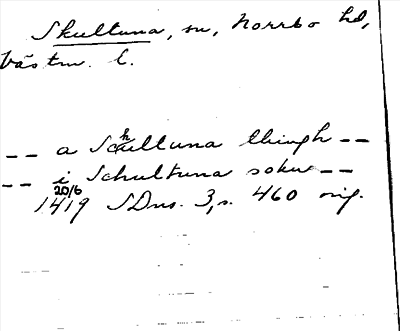 Skultuna, sn, Norrbo hd,
Västm. l.
-- a Schulluna thingh --
-- i Schultuna sokn --
20/6
1419 SDns. 3, s. 460 orig.